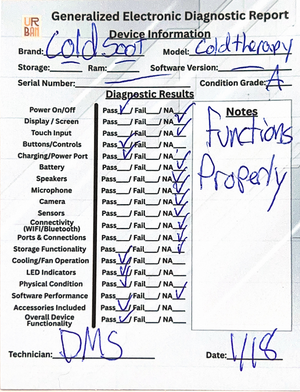 UR
BAN
Generalized Electronic Diagnostic Report
Device Information
Brand: Coldsoot Model: Coldtherapy
Storage: Ram: Software Version:
Serial Number: Condition Grade: A
Diagnostic Results
Power On/Off Pass ✓ / Fail / NA
Display / Screen Pass / Fail / NA ✓
Touch Input Pass / Fail / NA ✓
Buttons/Controls Pass ✓ / Fail / NA
Charging/Power Port Pass ✓ / Fail / NA
Battery Pass / Fail / NA ✓
Speakers Pass / Fail / NA ✓
Microphone Pass / Fail / NA ✓
Camera Pass / Fail / NA ✓
Sensors Pass / Fail / NA ✓
Connectivity
(WIFI/Bluetooth) Pass / Fail / NA ✓
Ports & Connections Pass / Fail / NA ✓
Storage Functionality Pass / Fail / NA ✓
Cooling/Fan Operation Pass ✓ / Fail / NA
LED Indicators Pass ✓ / Fail / NA
Physical Condition Pass ✓ / Fail / NA
Software Performance Pass / Fail / NA ✓
Accessories Included Pass ✓ / Fail / NA
Overall Device
Functionality Pass ✓ / Fail / NA
Notes
Functions
Properly
Technician: DMS Date: 1/18